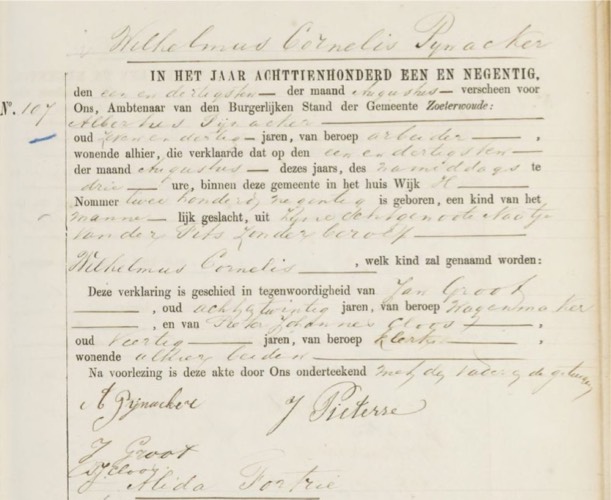 Wilhelmus Cornelis Pynacker
IN HET JAAR ACHTTIENHONDERD EEN EN NEGENTIG,
Nº. 107
den een en dertigsten der maand Augustus verscheen voor
Ons, Ambtenaar van den Burgerlijken Stand der Gemeente Zoeterwoude:
Albertus Pynacker
oud zeven en dertig jaren, van beroep arbeider,
wonende alhier, die verklaarde dat op den een en dertigsten
der maand Augustus dezes jaars, des namiddags te
drie ure, binnen deze gemeente in het huis Wijk H
Nommer twee honderd negentig is geboren, een kind van het
manne lijk geslacht, uit zijne echtgenoote Naatje
van der Pits zonder beroep
Wilhelmus Cornelis, welk kind zal genaamd worden:
Deze verklaring is geschied in tegenwoordigheid van Jan Groot
, oud achtentwintig jaren, van beroep wagenmaker
, en van Pieter Johannes Cloos
oud veertig jaren, van beroep klerk,
wonende alhier beiden
Na voorlezing is deze akte door Ons onderteekend met den vader en de getuigen
A Pijnacker
J Pieterse
J Groot
PJ Cloos
Alida Fortrie